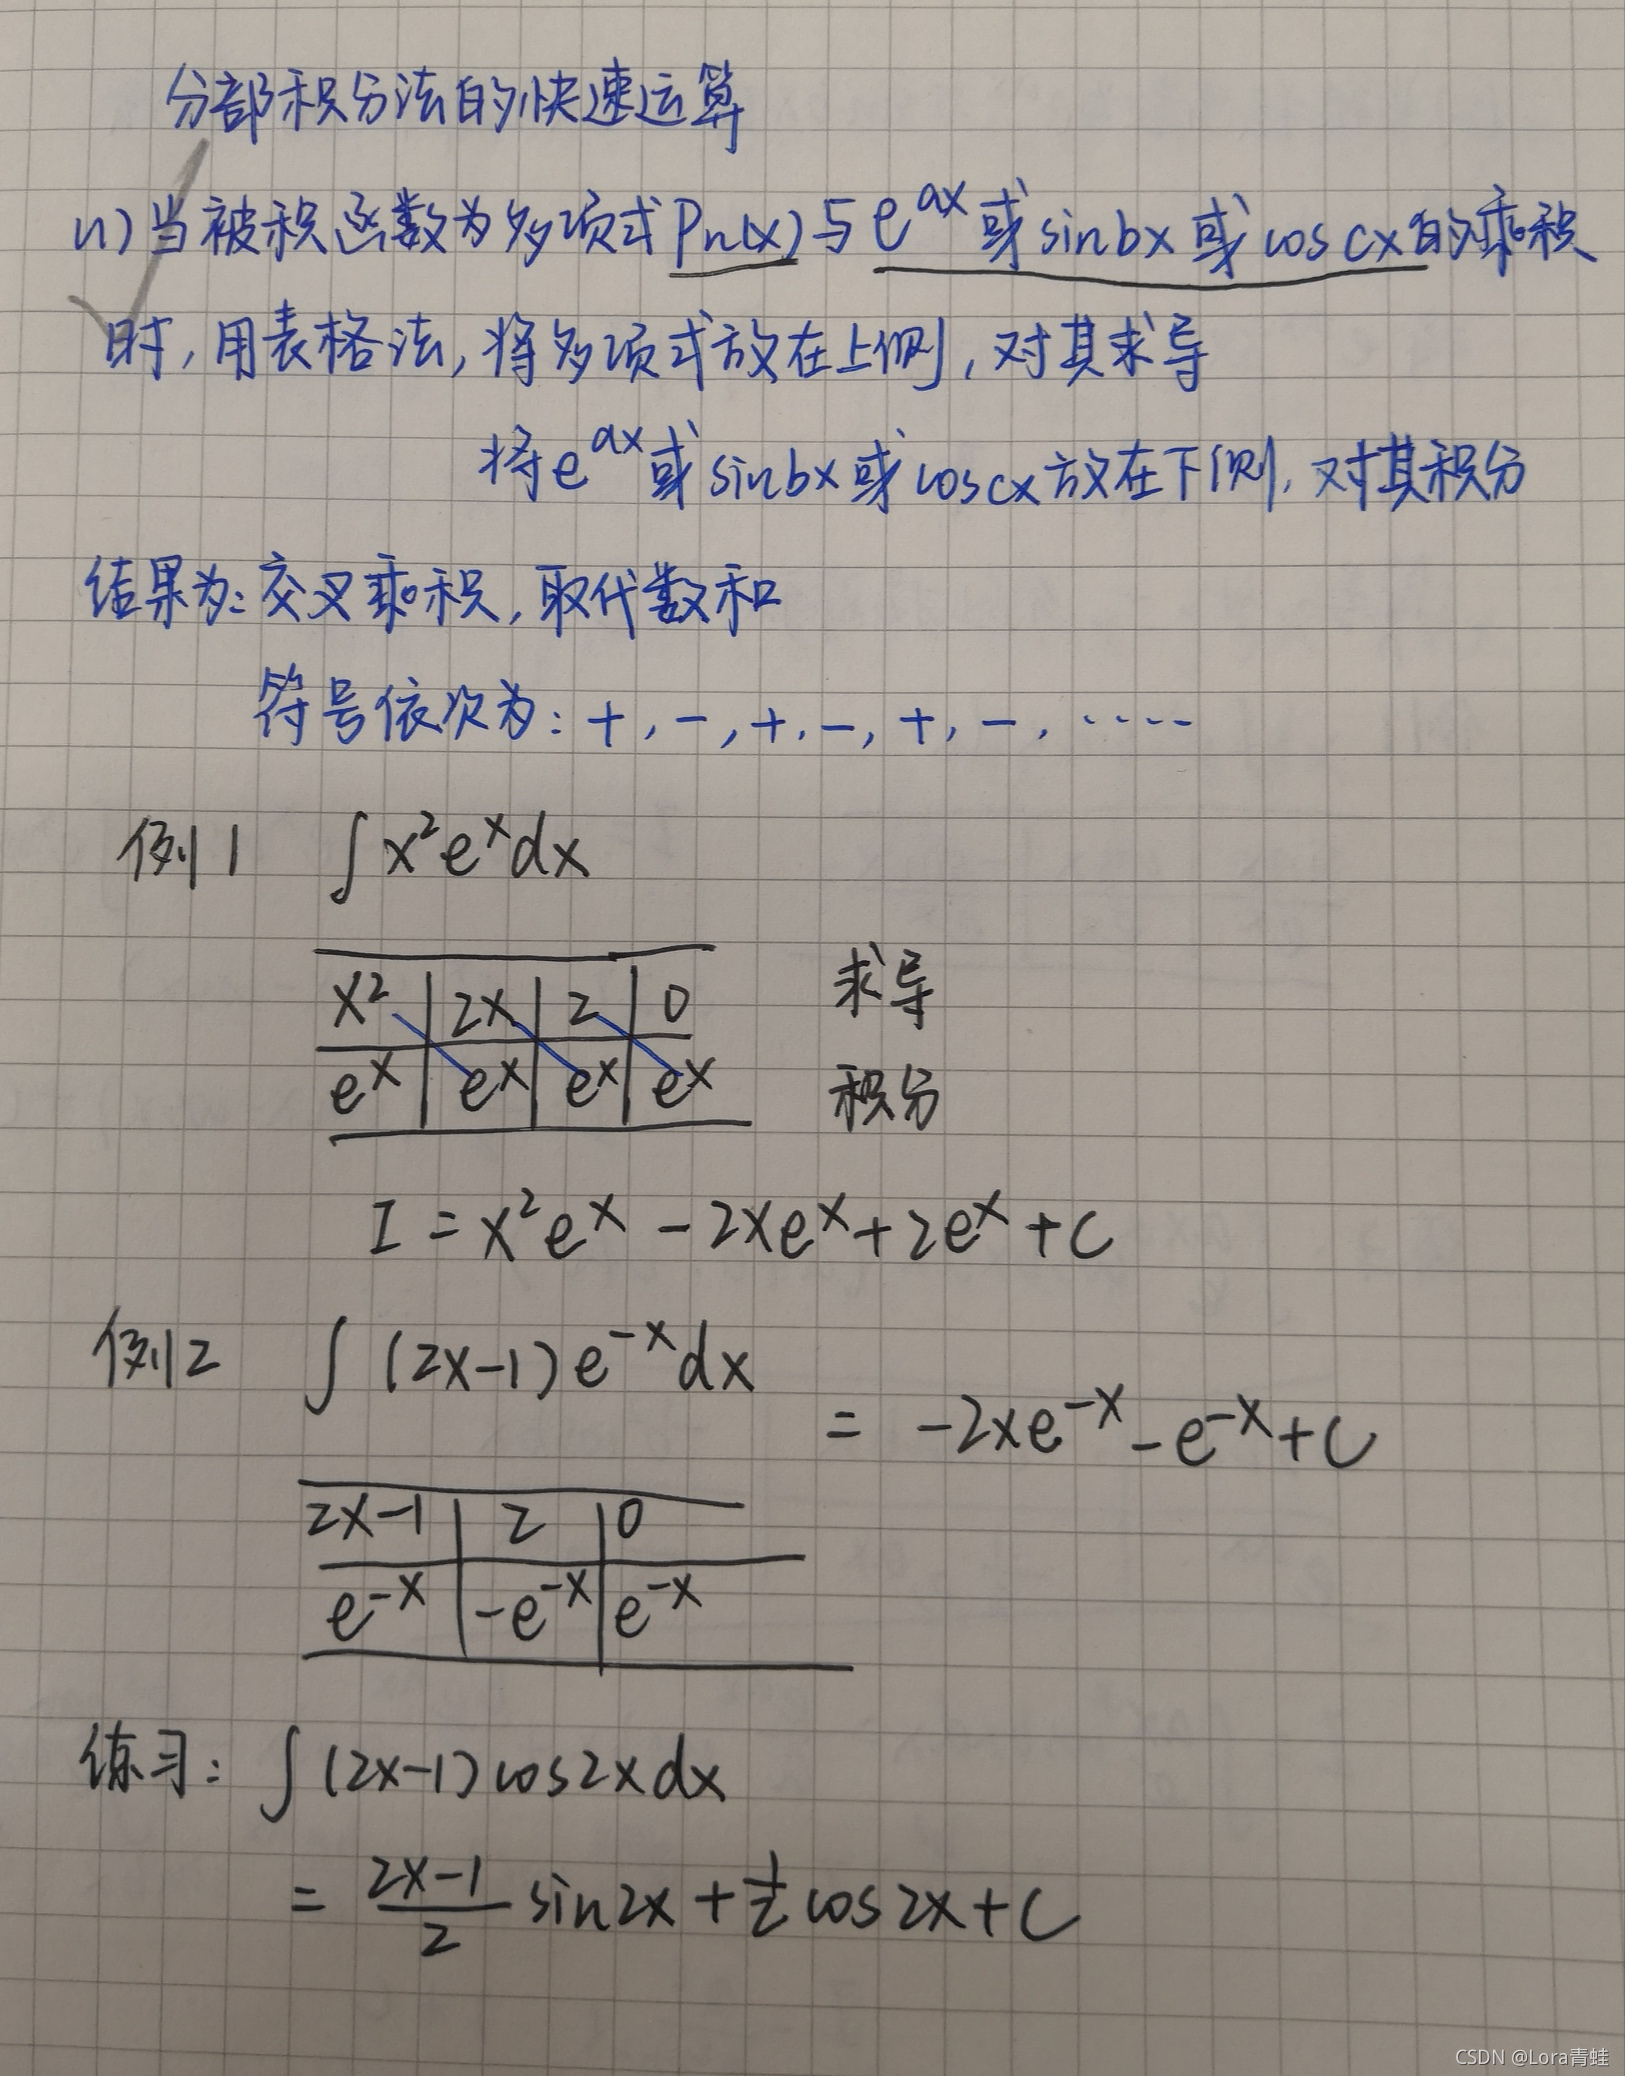 分部积分法的快速运算
(1) 当被积函数为多项式Pn(x)与e^ax或sinbx或cos cx的乘积
时,用表格法,将多项式放在上侧,对其求导
将e^ax或sinbx或coscx放在下侧,对其积分
结果为:交叉乘积,取代数和
符号依次为:+,-,+,-,+,-,……
例1 ∫x²e^x dx
x² | 2x | 2 | 0 求导
e^x | e^x | e^x | e^x 积分
I = x²e^x - 2xe^x + 2e^x + C
例2 ∫(2x-1)e^-x dx = -2xe^-x - e^-x + C
2x-1 | 2 | 0
e^-x | -e^-x | e^-x
练习: ∫(2x-1)cos2x dx
= (2x-1)/2 sin2x + 1/2 cos2x + C
CSDN @Lora青蛙